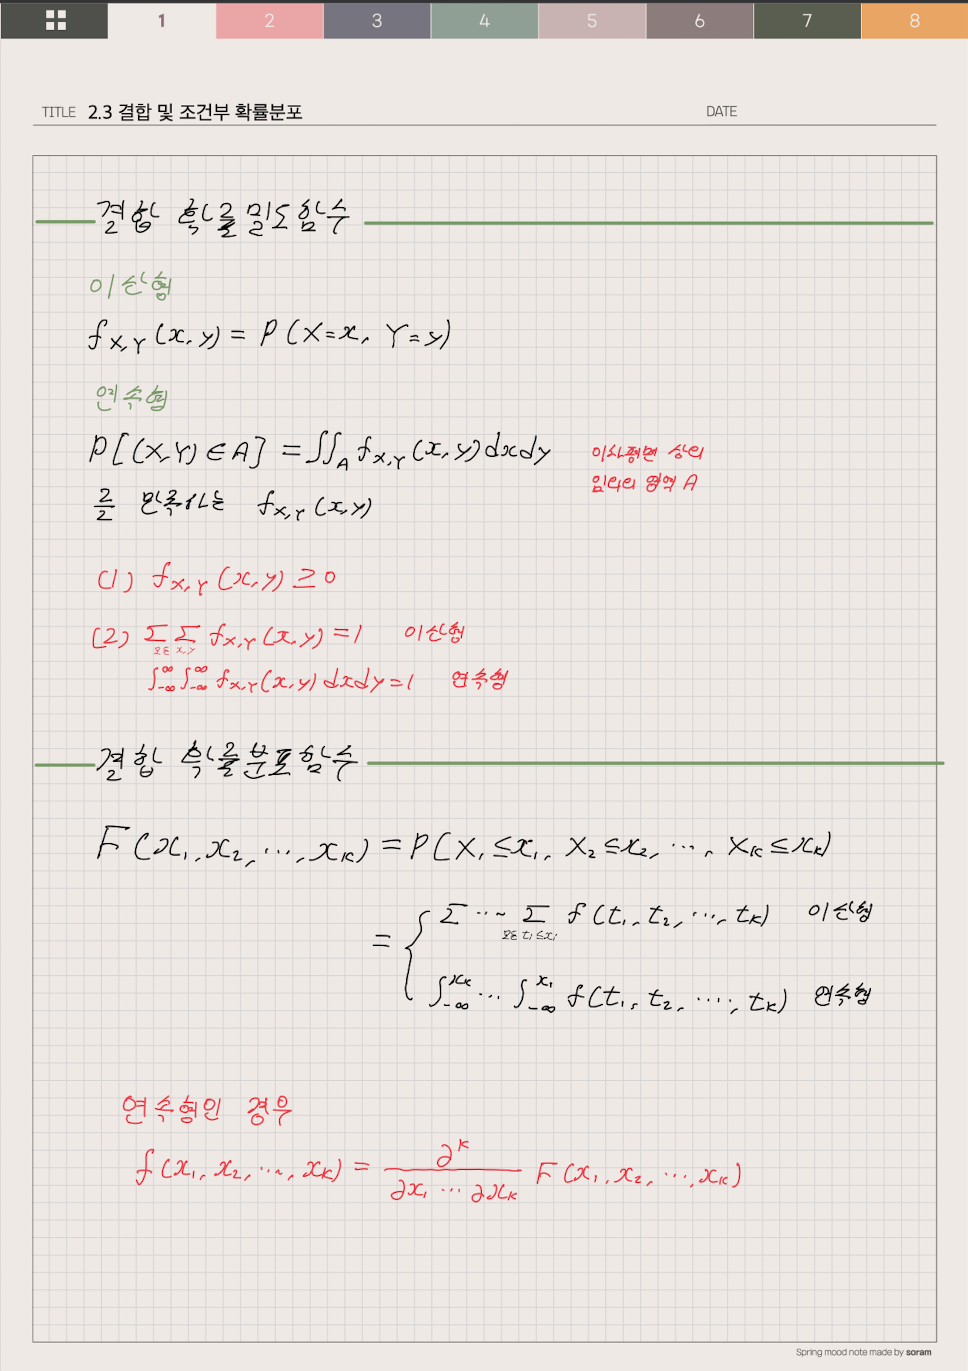 1 2 3 4 5 6 7 8
TITLE 2.3 결합 및 조건부 확률분포 DATE
결합 확률밀도함수
이산형
f_{X,Y}(x,y) = P(X=x, Y=y)
연속형
P[(X,Y)∈A] = ∬_A f_{X,Y}(x,y)dxdy
이차평면 상의
임의의 영역 A
를 만족하는 f_{X,Y}(x,y)
(1) f_{X,Y}(x,y) ≥ 0
(2) Σ Σ f_{X,Y}(x,y) = 1 이산형
모든 x,y
∫_{-∞}^{∞} ∫_{-∞}^{∞} f_{X,Y}(x,y) dxdy = 1 연속형
결합 확률분포함수
F(x₁, x₂, ⋯, x_K) = P(X₁≤x₁, X₂≤x₂, ⋯, X_K≤x_K)
= { Σ ⋯ Σ f(t₁, t₂, ⋯, t_K) 이산형
모든 t₁≤x₁
∫_{-∞}^{x_K} ⋯ ∫_{-∞}^{x₁} f(t₁, t₂, ⋯, t_K) 연속형
연속형인 경우
f(x₁, x₂, ⋯, x_K) = ∂^K / ∂x₁ ⋯ ∂x_K F(x₁, x₂, ⋯, x_K)
Spring mood note made by soram